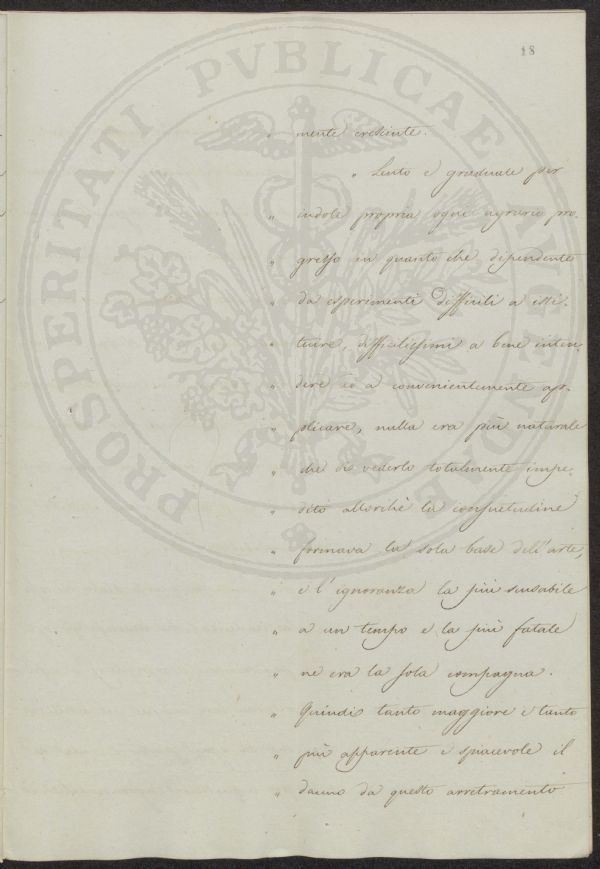 18
PROSPERITATI PVBLICAE AVGENDAE
" mente crescente.
" Lento e graduale per
" indole propria ogni agrario pro-
" gresso in quanto che dipendente
" da esperimenti difficili a isti-
" tuire, difficilissimi a bene inten-
" dere ed a convenientemente ap-
" plicare, nulla era più naturale
" che di vederlo totalmente impe-
" dito allorchè la consuetudine
" formava la sola base dell'arte,
" e l'ignoranza la più scusabile
" a un tempo e la più fatale
" ne era la sola compagna.
" Quindi tanto maggiore e tanto
" più apparente e spiacevole il
" danno da questo arretramento